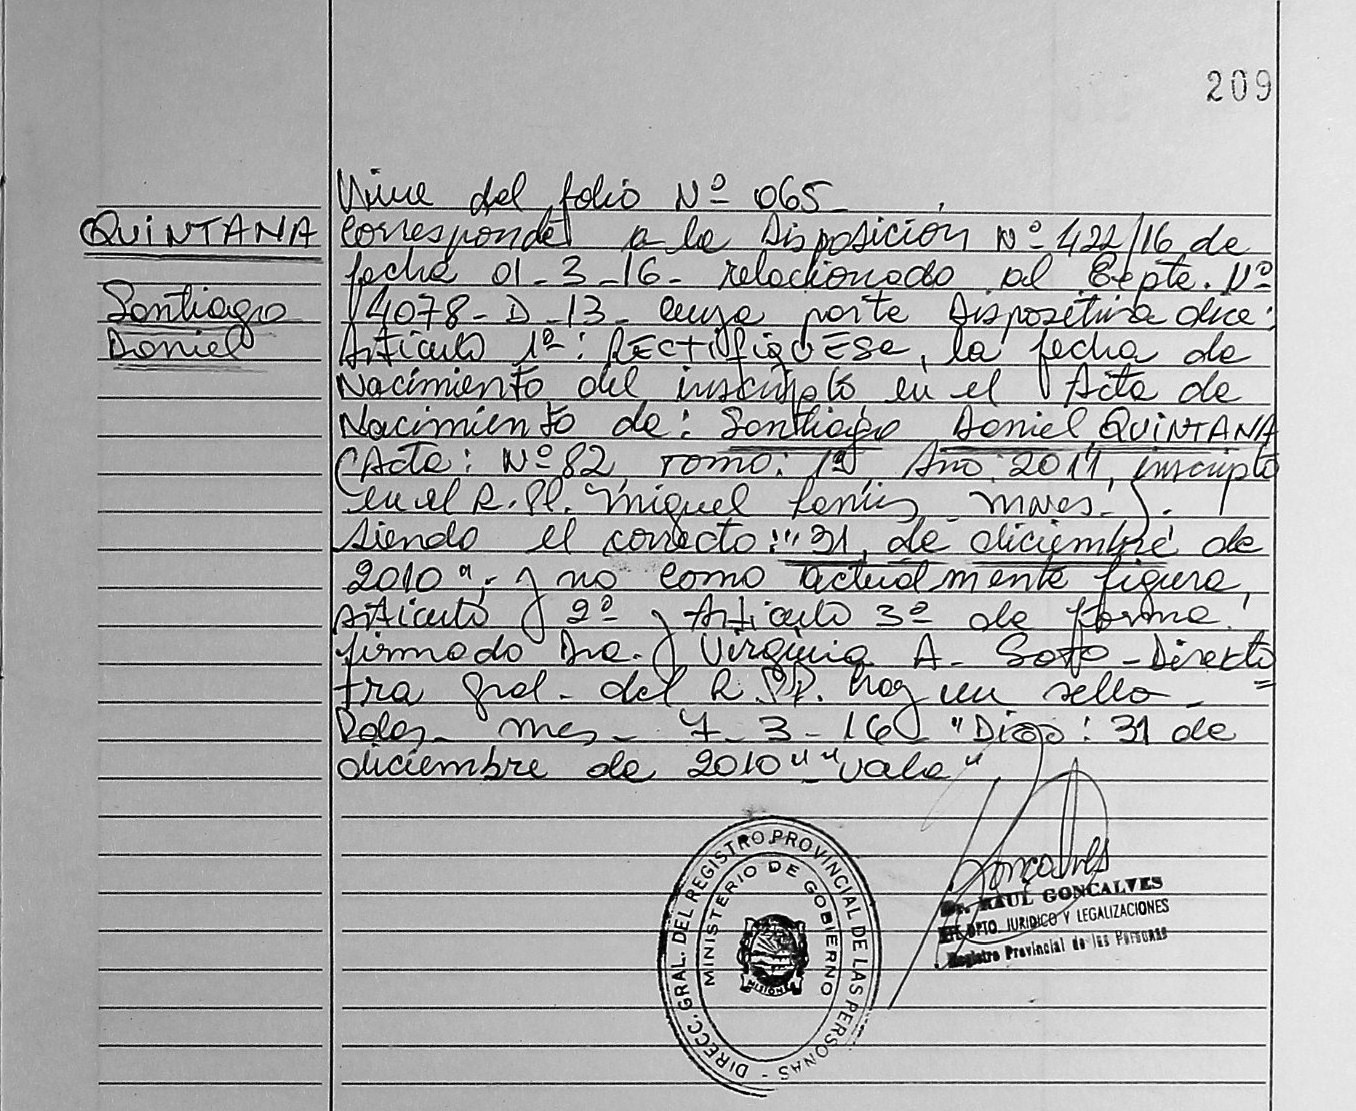 209
Viene del folio Nº 065-
QUINTANA
Santiago
Daniel
Corresponde a la Disposición Nº 422/16 de
fecha 01-3-16- relacionado al Expte. Nº
4078-D-13- cuya parte Dispositiva dice:
Artículo 1º: RECTIFIQUESE, la fecha de
Nacimiento del inscripto en el Acta de
Nacimiento de: Santiago Daniel QUINTANA
(Acta: Nº 82, Tomo: 1º, Año: 2011, inscripto
en el R.P. Miguel Lanús Mnes.-).
siendo el correcto: "31, de diciembre de
2010", y no como actualmente figura,
Artículo 2º y Artículo 3º de forma.
firmado Dra. Virginia A. Soto - Directo
ra Gral. del R.P.P. hay un sello -
Pdas- Mnes- 7-3-16 "Digo: 31 de
diciembre de 2010" "vale"
Goncalves
Dr. RAUL GONCALVES
DPTO. JURIDICO Y LEGALIZACIONES
Registro Provincial de las Personas
DIRECC. GRAL. DEL REGISTRO PROVINCIAL DE LAS PERSONAS -
MINISTERIO DE GOBIERNO
MISIONES